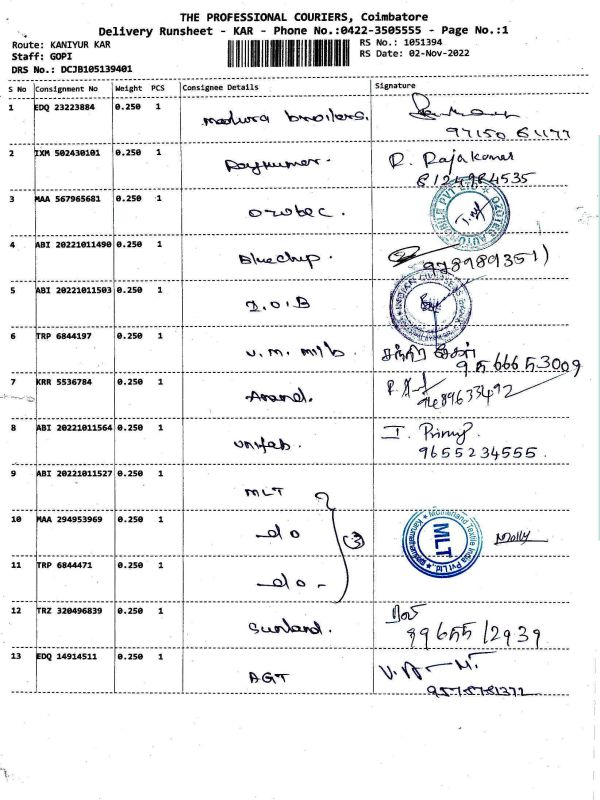 THE PROFESSIONAL COURIERS, Coimbatore
Delivery Runsheet - KAR - Phone No.:0422-3505555 - Page No.:1
Route: KANIYUR KAR
RS No.: 1051394
Staff: GOPI
RS Date: 02-Nov-2022
DRS No.: DCJB105139401
S No Consignment No Weight PCS Consignee Details Signature
1 EDQ 23223884 0.250 1 Madura broilers.
97150 61177
2 IXM 502430101 0.250 1 Rajkumar. R. Rajakumar
8124984535
3 MAA 567965681 0.250 1 Ozotec.
4 ABI 20221011490 0.250 1 Bluechip.
9789809351)
5 ABI 20221011503 0.250 1 I.O.B
6 TRP 6844197 0.250 1 V.M. Mills
9566653009
7 KRR 5536784 0.250 1 Anand.
9489633492
8 ABI 20221011564 0.250 1 Unifab. I.
9655234555.
9 ABI 20221011527 0.250 1 MLT
10 MAA 294953969 0.250 1 do (3) MLT Molly
11 TRP 6844471 0.250 1 do -
12 TRZ 320496839 0.250 1 Sunland.
99655 12939
13 EDQ 14914511 0.250 1 AGT
9578781372